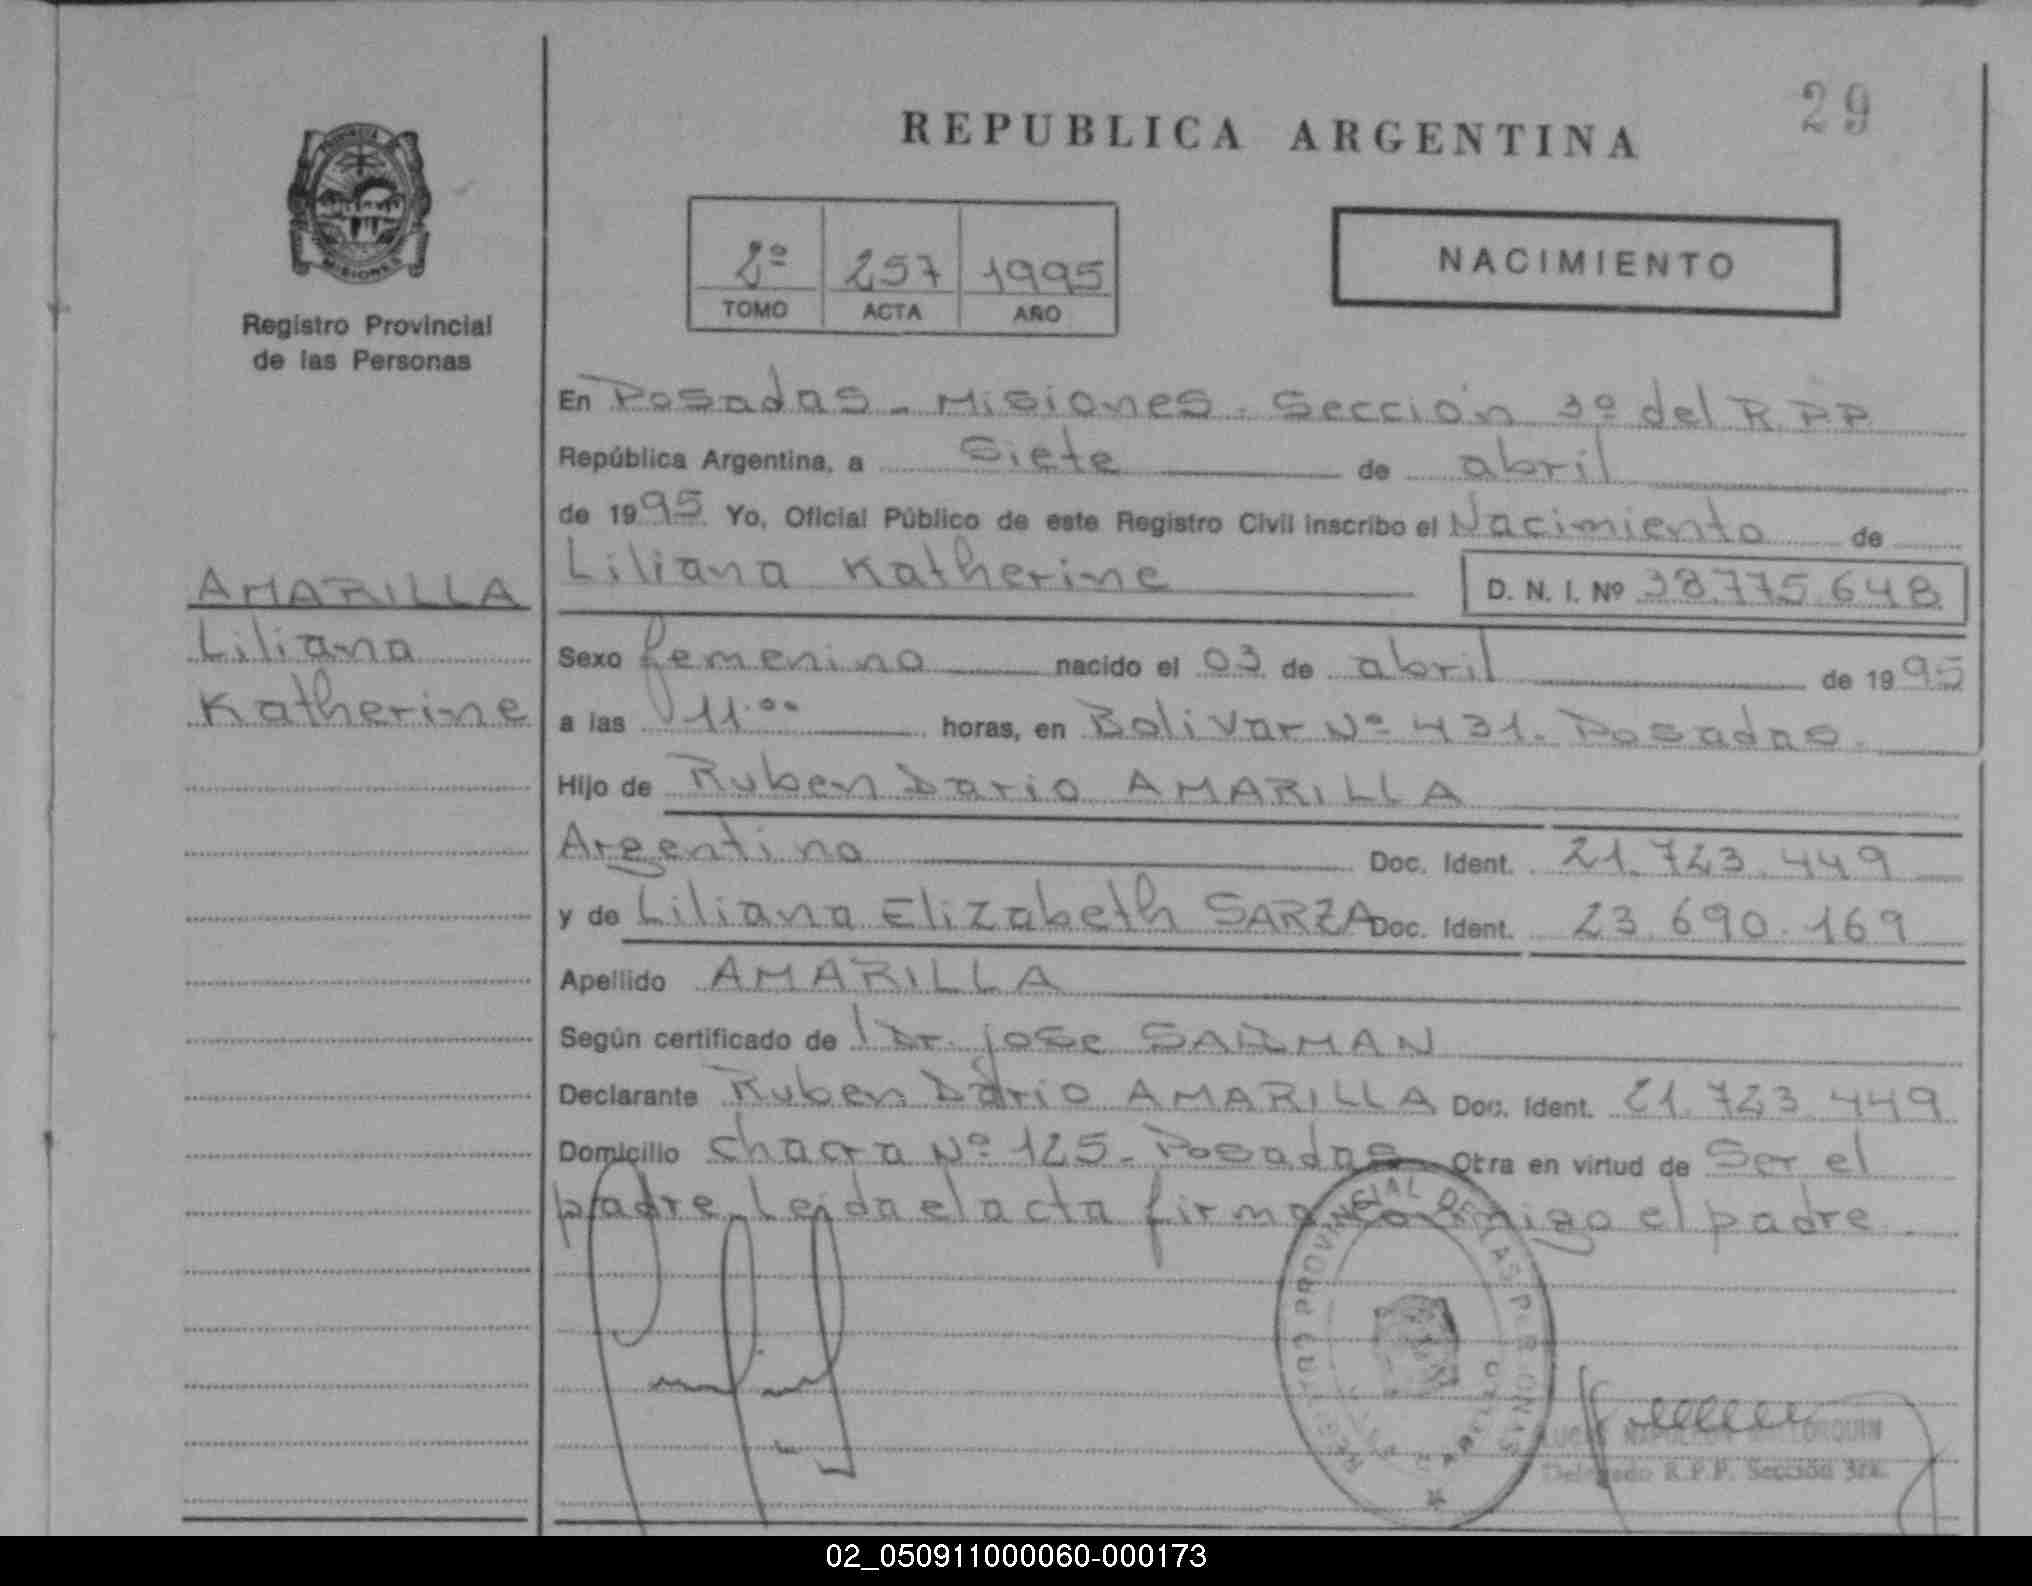 29
REPUBLICA ARGENTINA
PROVINCIA
MISIONES
Registro Provincial
de las Personas
2º 257 1995
TOMO ACTA AÑO
NACIMIENTO
En Posadas - Misiones - Sección 3º del R.P.P.
República Argentina, a Siete de abril
de 1995 Yo, Oficial Público de este Registro Civil inscribo el Nacimiento de
Liliana Katherine D. N. I. Nº 38.775.648
AMARILLA
Liliana
Katherine
Sexo femenino nacido el 03 de abril de 1995
a las 11.00 horas, en Bolivar Nº 431. Posadas.
Hijo de Ruben Dario AMARILLA
Argentino Doc. Ident. 21.723.449
y de Liliana Elizabeth SARZA Doc. Ident. 23.690.169
Apellido AMARILLA
Según certificado de Dr. jose
Declarante Ruben Dario AMARILLA Doc. Ident. 21.723.449
Domicilio chacra Nº 125 - Posadas Otra en virtud de Ser el
padre. Leida el acta firma conmigo el padre.
PROVINCIAL DE LAS PERSONAS
Delegado R.P.P. Sección 3ra.
02_050911000060-000173